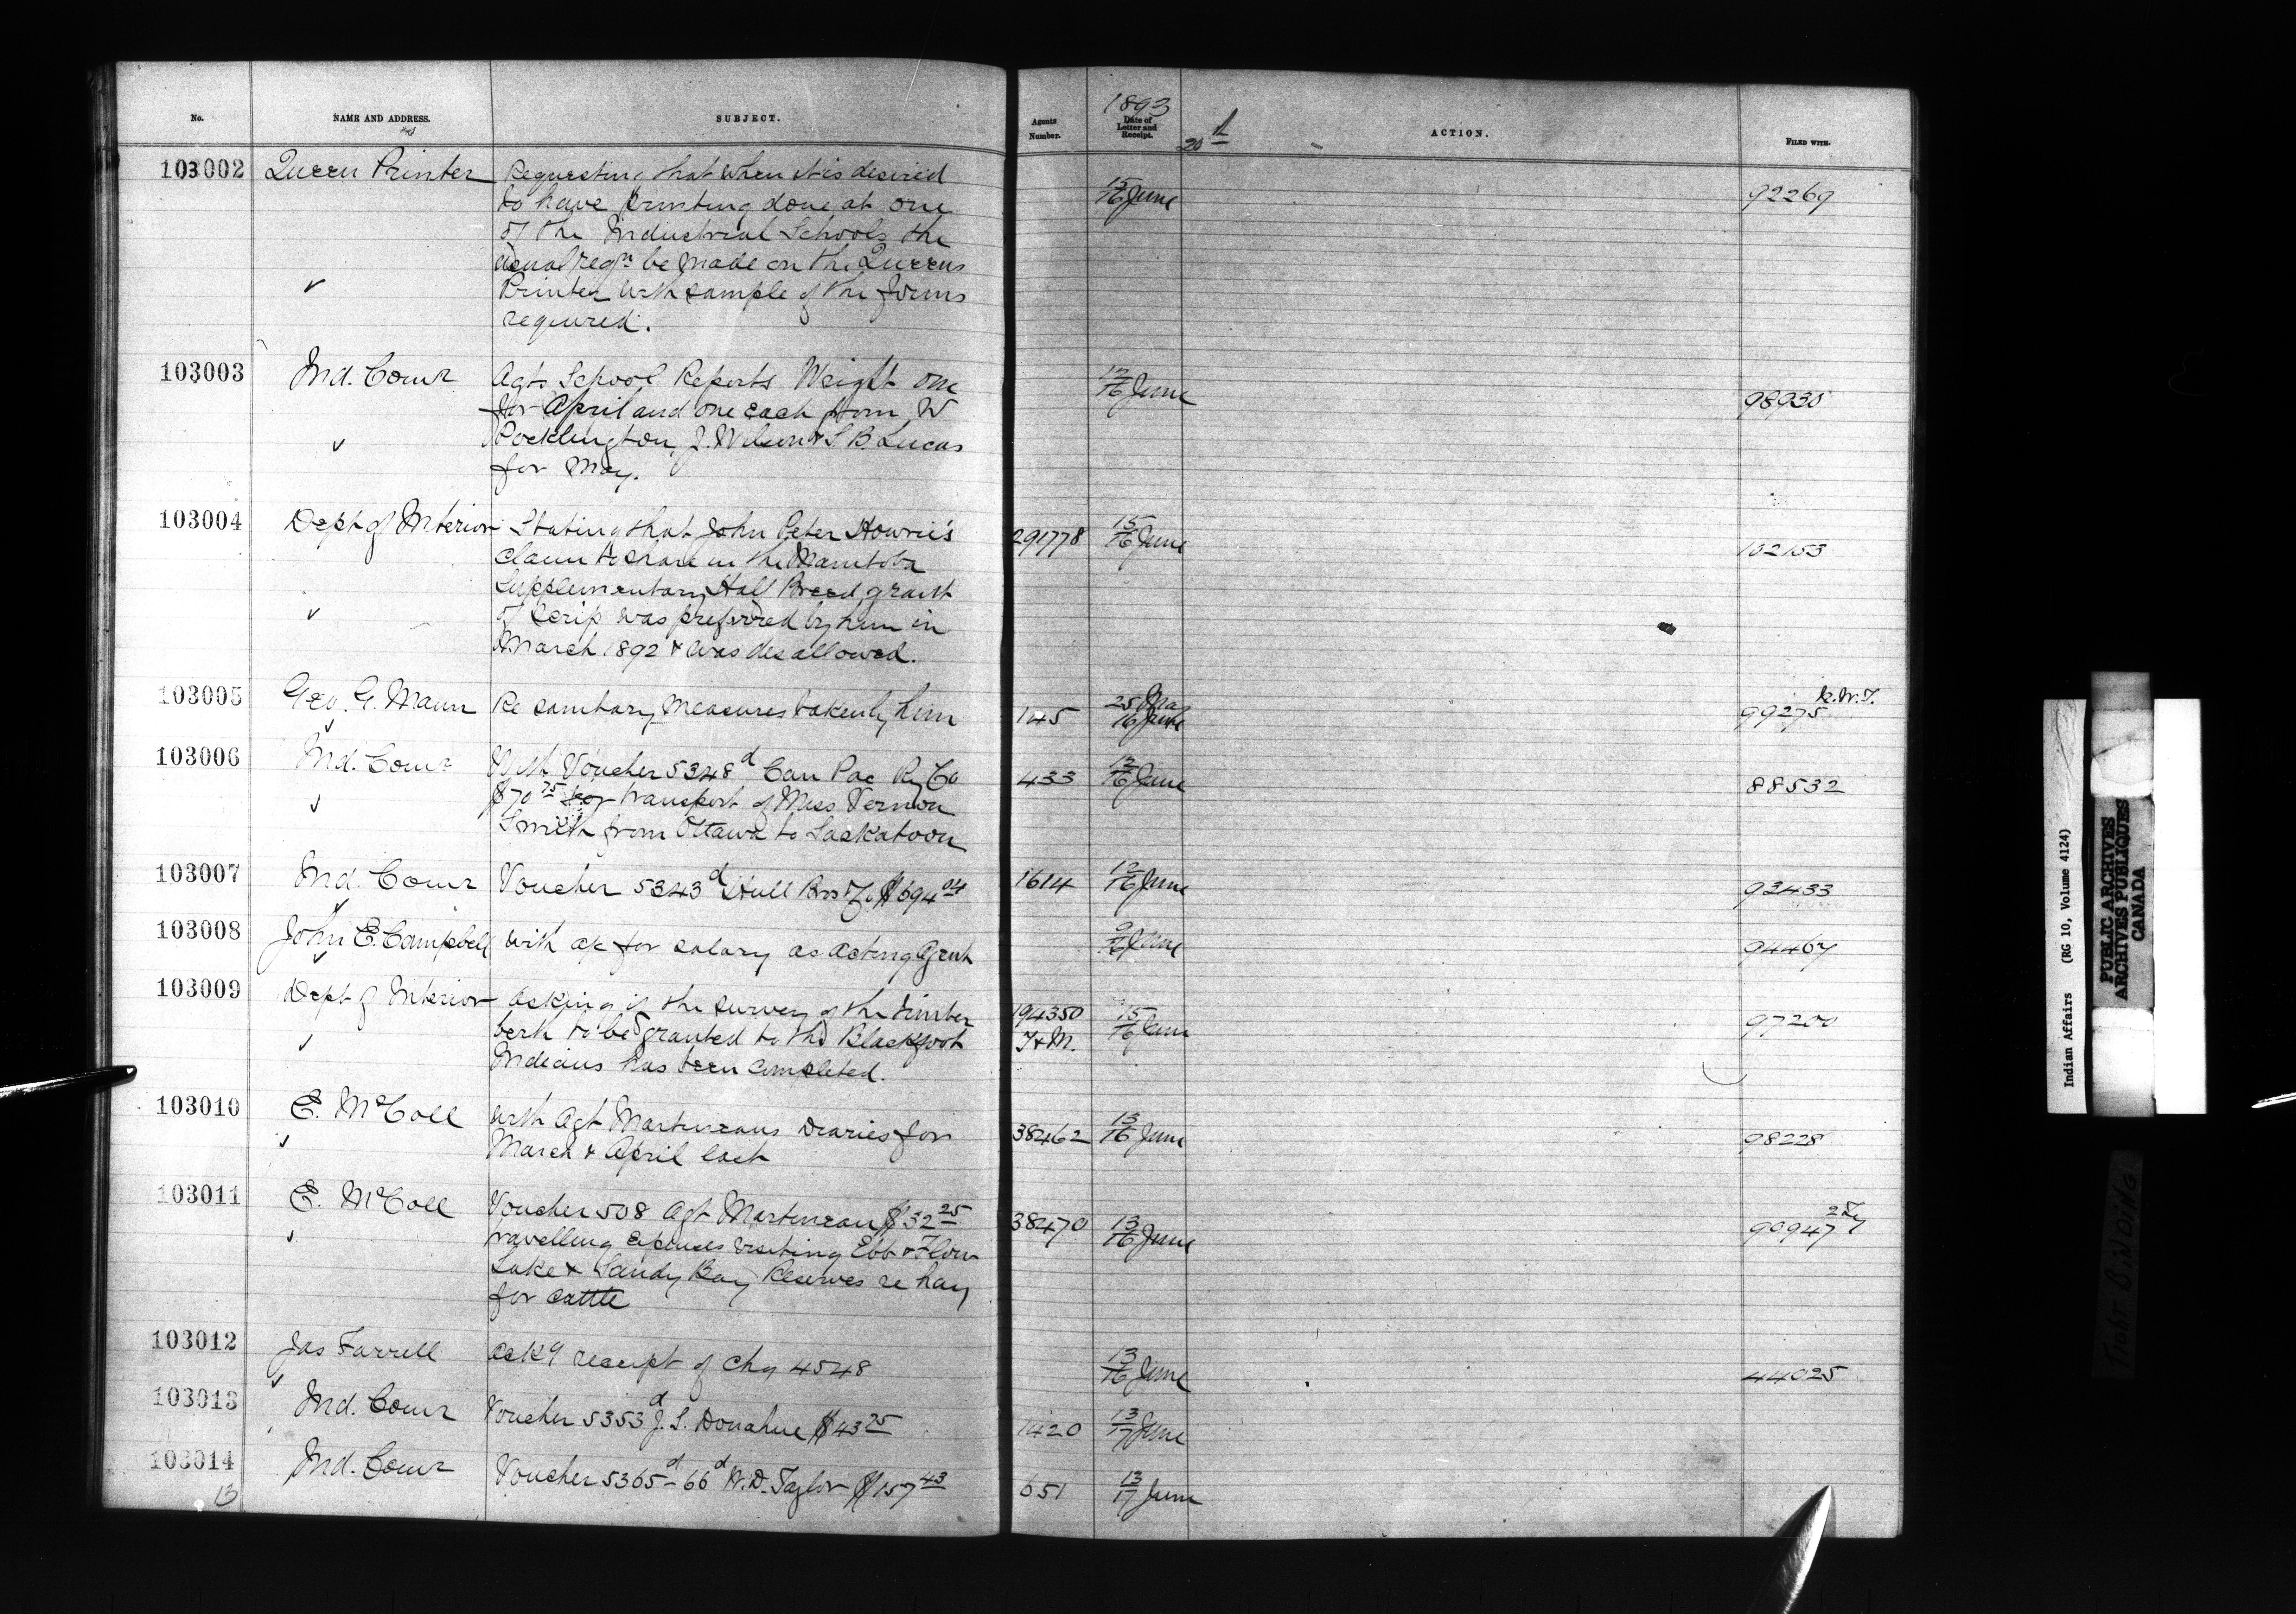 No. NAME AND ADDRESS. SUBJECT. Agents Number. 1893 Date of Letter and Receipt. ACTION. FILED WITH.
20
103002 Queen Printer Requesting that when it is desired 15/16 June 92269
to have printing done at one
of the Industrial Schools the
usual reqn be made on the Queens
Printer with sample of the forms
required.
103003 Ind. Comr Agts School Reports Wright one 12/16 June 98930
for April and one each from W
Pocklington, J. Wilson & S. B. Lucas
for May.
103004 Dept of Interior Stating that John Peter Howrie's 291778 15/16 June 102153
claim to share in the Manitoba
Supplementary Half Breed grant
of scrip was preferred by him in
March 1892 & was disallowed.
103005 Geo. G. Mann Re sanitary measures taken by him 145 25 May 16 June 99275 N.W.T.
103006 Ind. Comr With Voucher 5348d Can Pac Ry Co 433 13/16 June 88532
$70 75 for transport of Miss Vernon
Smith from Ottawa to Saskatoon
103007 Ind. Comr Voucher 5343d Hull Bros & Co $694 04 1614 12/16 June 93433
103008 John E. Campbell with a/c for salary as acting Agent 9/16 June 94467
103009 Dept of Interior Asking if the survey of the timber 194350 15/16 June 97200
berth to be granted to the Blackfoot T & M.
Indians has been completed.
103010 E. McColl with Agt Martineaus Diaries for 38462 13/16 June 98228
March & April last
103011 E. McColl Voucher 508 Agt Martineau $32 25 38470 13/16 June 90947
travelling expenses visiting Ebb & Flow
Lake & Sandy Bay Reserves re hay
for cattle
103012 Jas Farrell Ack9 receipt of chq 4548 13/16 June 44025
103013 Ind. Comr Voucher 5353d J. S. Donahue $43 25 1420 13/17 June
103014 Ind. Comr Voucher 5365d - 66d W. D. Taylor $157 43 651 13/17 June
13
Indian Affairs (RG 10, Volume 4124)
PUBLIC ARCHIVES
ARCHIVES PUBLIQUES
CANADA
TIGHT BINDING